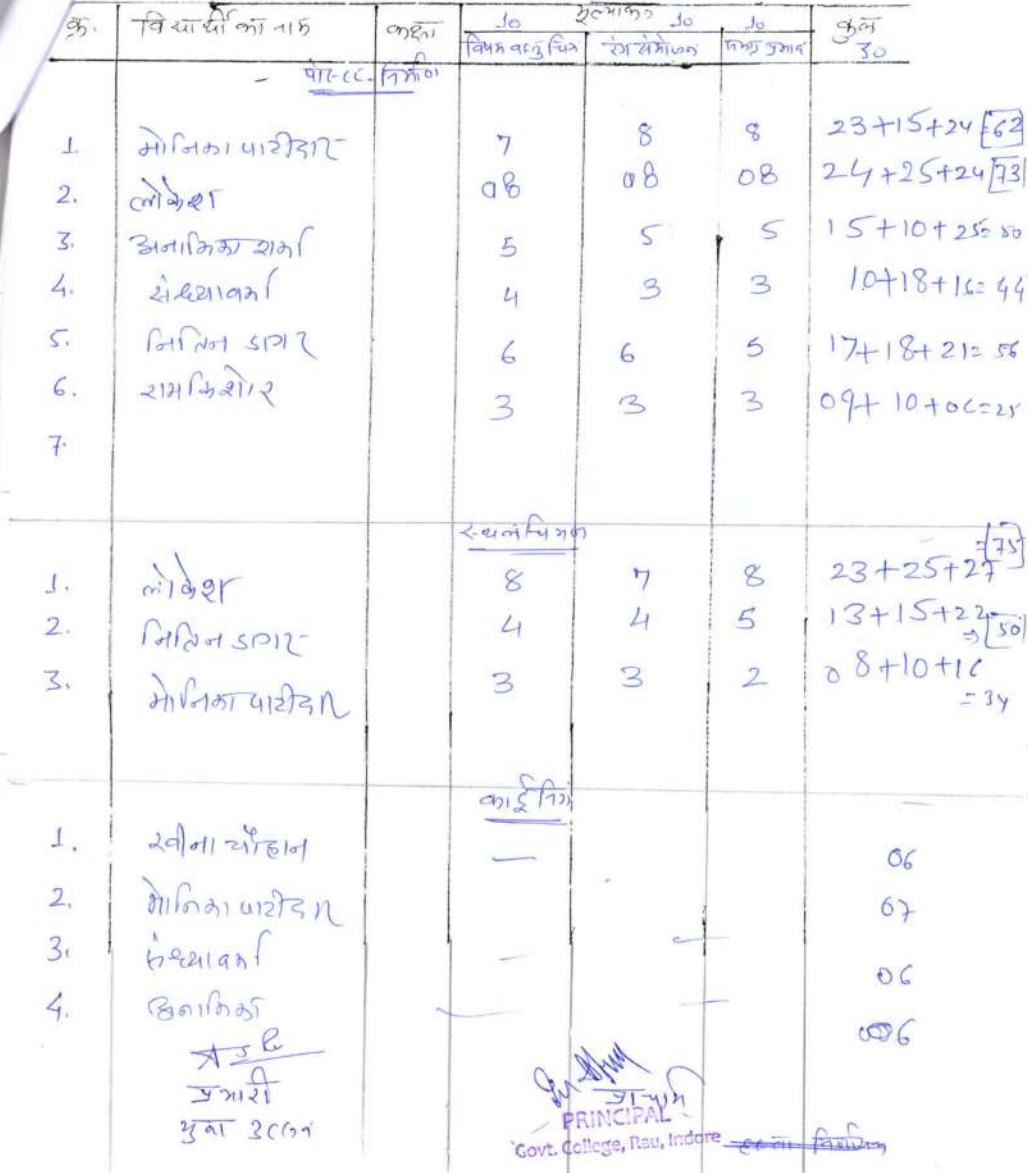 क्र. विद्यार्थी का नाम कक्षा मूल्यांकन कुल
10 10 10 30
विषय वस्तु चित्र रंग संयोजन समग्र प्रभाव
पोस्टर-निर्माण
1. मोनिका पाटीदार 7 8 8 23+15+24=62
2. लोकेश 08 08 08 24+25+24 73
3. अनामिका शर्मा 5 5 5 15+10+25=50
4. संध्या वर्मा 4 3 3 10+18+16=44
5. नितिन डागर 6 6 5 17+18+21=56
6. रामकिशोर 3 3 3 09+10+06=25
7.
स्थल चित्रण
=75
1. लोकेश 8 7 8 23+25+27
2. नितिन डागर 4 4 5 13+15+22
⇒50
3. मोनिका पाटीदार 3 3 2 08+10+16
=34
कार्टूनिंग
1. रवीना चौहान — 06
2. मोनिका पाटीदार 07
3. संध्या वर्मा — — 06
4. अनामिका — — 06
प्रभारी
युवा उत्सव
प्राचार्य
PRINCIPAL
Govt. College, Rau, Indore